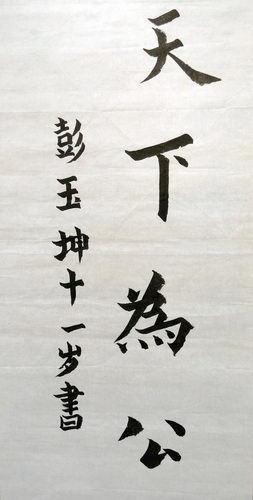 天下為公
彭玉坤十一岁書